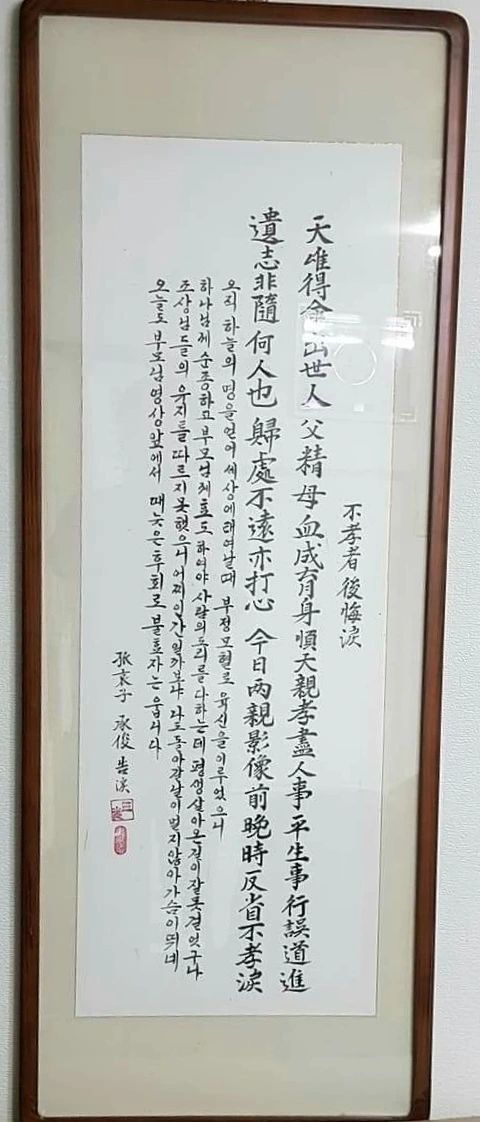 不孝者 後悔淚
天唯得命出世人 父精母血成育身 順天親孝盡人事 平生事行誤道進
遺志非隨何人也 歸處不遠亦打心 今日両親影像前 晩時反省不孝淚
오직 하늘의 명을 얻어 세상에 태여날때 부정모혈로 육신을 이루었으니
하나님께 순종하고 부모님께 효도하여야 사람의 도리를 다하는데 평생 살아온길이 잘못걸엇구나
조상님들의 유지를 따르지못했으니 어찌 인간일까보냐 나도 돌아갈날이 멀지않아 가슴이 뛰네
오늘도 부모님 영상앞에서 때늦은 후회로 불효자는 웁니다
孤哀子 承俊 告淚